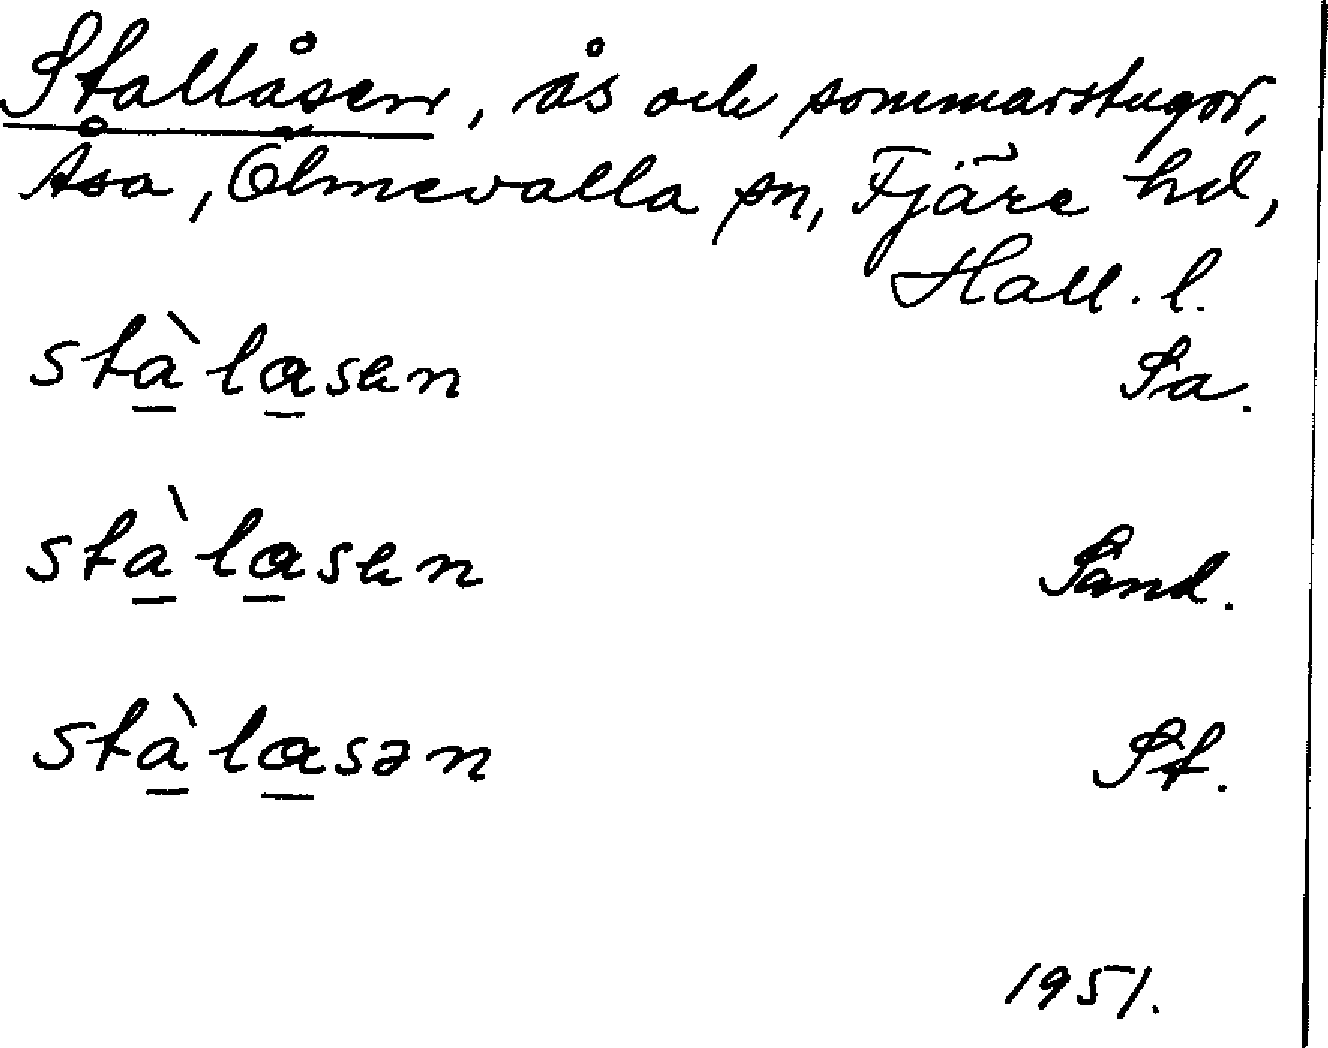 Stallåsen, ås och sommarstugor,
Åsa, Ölmevalla sn, Fjäre hd,
Hall. l.
stàlasen Sa.
stàlasen Sand.
stàlasən St.
1951.